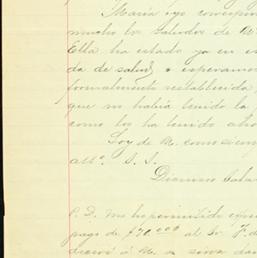 María y yo correspon
mucho los saludos de U
Ella ha estado ya en
da de salud, & esperamos
formalmente restablecida
que no había tenido la
como los ha tenido aho
Soy de U. como siem
atto. S. S.
Dionisio
P. D. Me he permitido
pago de $70.000 al Sr. F. d
á U. se sirva da